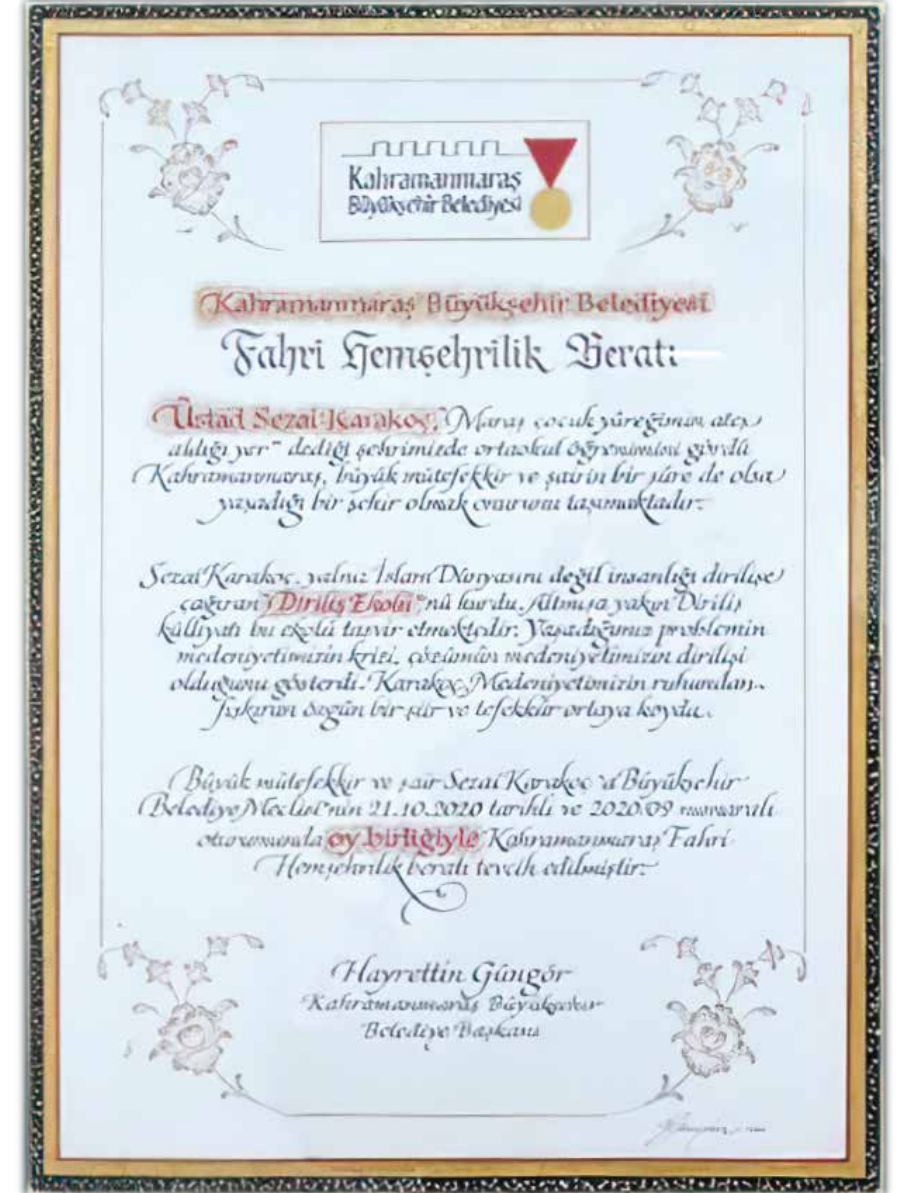 Kahramanmaraş
Büyükşehir Belediyesi
Kahramanmaraş Büyükşehir Belediyesi
Fahri Hemşehrilik Beratı
Üstad Sezai Karakoç, "Maraş çocuk yüreğimin ateş
aldığı yer" dediği şehrimizde ortaokul öğrenimini gördü
Kahramanmaraş, büyük mütefekkir ve şairin bir süre de olsa
yaşadığı bir şehir olmak onurunu taşımaktadır.
Sezai Karakoç, yalnız İslam Dünyasını değil insanlığı dirilişe
çağıran "Diriliş Ekolü"nü kurdu. Altmışa yakın Diriliş
külliyatı bu ekolü tasvir etmektedir. Yaşadığımız problemin
medeniyetimizin krizi, çözümün medeniyetimizin dirilişi
olduğunu gösterdi. Karakoç, Medeniyetimizin ruhundan
fışkıran özgün bir şiir ve tefekkür ortaya koydu.
Büyük mütefekkir ve şair Sezai Karakoç'a Büyükşehir
Belediye Meclisi'nin 21.10.2020 tarihli ve 2020/09 numaralı
oturumunda oy birliğiyle Kahramanmaraş Fahri
Hemşehrilik beratı tevcih edilmiştir.
Hayrettin Güngör
Kahramanmaraş Büyükşehir
Belediye Başkanı